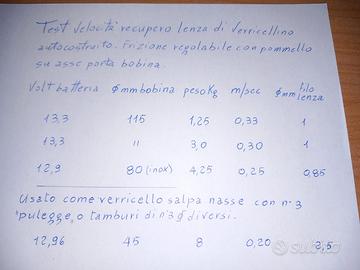 Test velocità recupero lenza di Verricellino
autocostruito. Frizione regolabile con pommello
su asse porta bobina.
Volt batteria ϕ mm bobina peso Kg m/sec ϕ mm filo lenza
13,3 115 1,25 0,33 1
13,3 " 3,0 0,30 1
12,9 80 (inox) 4,25 0,25 0,85
Usato come verricello salpa nasse con n° 3
"pulegge" o tamburi di n° 3 ϕ diversi.
12,96 45 8 0,20 3,5
subito.it